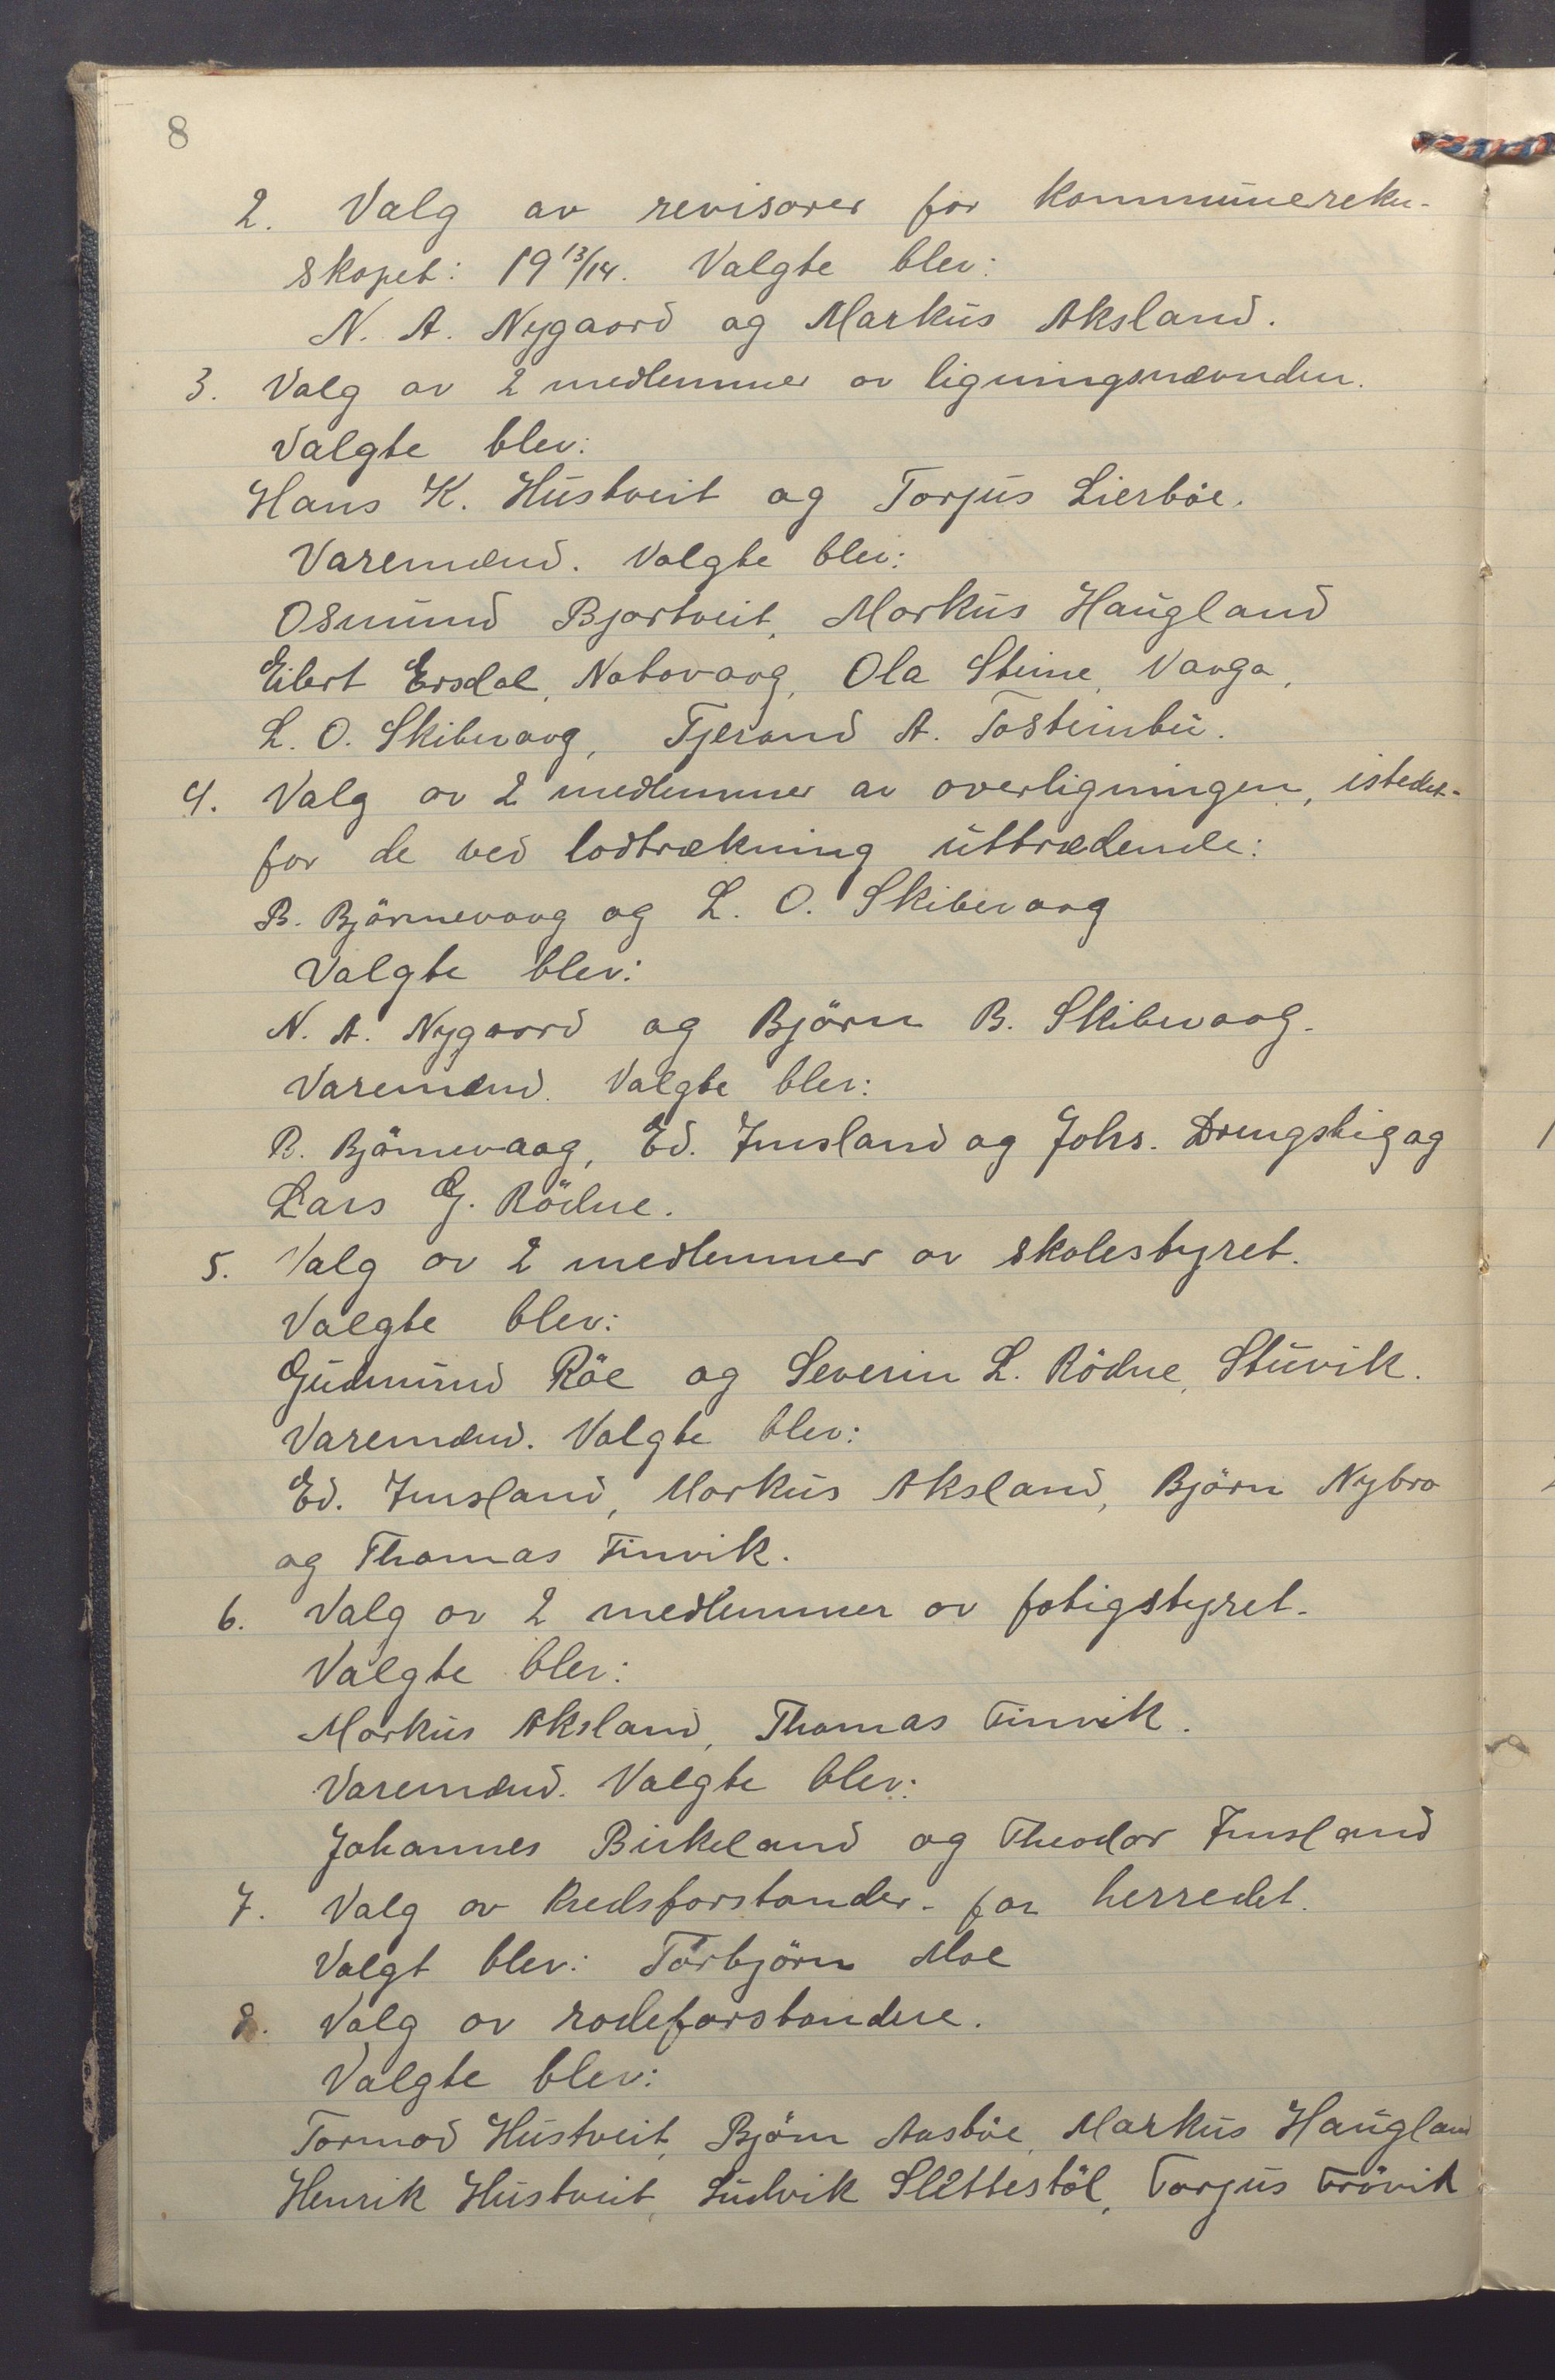 8
2. Valg av revisorer for kommunereku-
skapet: 19 13/14. Valgte blev:
N. A. Nygaard og Markus Aksland.
3. Valg av 2 medlemmer av ligningsnævnden.
Valgte blev:
Hans K. Hustveit og Torjus Lierböe.
Varemænd. Valgte blev:
Osmund Bjortveit, Markus Haugland
Eilert Ersdal, Natvaag, Ola Steine, Vaaga,
L. O. Skibevaag, Tjerand A. Tosteinbu.
4. Valg av 2 medlemmer av overligningen, istedet-
for de ved lodtrækning uttrædende:
B. Björnevaag og L. O. Skibevaag
Valgte blev:
N. A. Nygaard og Björn B. Skibevaag.
Varemænd. Valgte blev:
B. Björnevaag, Ed. Imsland og Johs. Drengstig og
Lars G. Rödne.
5. Valg av 2 medlemmer av skolestyret.
Valgte blev:
Gudmund Röe og Severin L. Rödne, Stuvik.
Varemænd. Valgte blev:
Ed. Imsland, Markus Aksland, Björn Nybro
og Thomas Finvik.
6. Valg av 2 medlemmer av fatigstyret.
Valgte blev:
Markus Aksland, Thomas Finvik.
Varemænd. Valgte blev:
Johannes Birkeland og Theodor Imsland
7. Valg av kredsforstander for herredet.
Valgt blev: Torbjörn Moe
8. Valg av rodeforstandere.
Valgte blev:
Tormod Hustveit, Björn Aasböe, Markus Haugland
Henrik Hustveit, Ludvik Slettestöl, Torjus Frövik